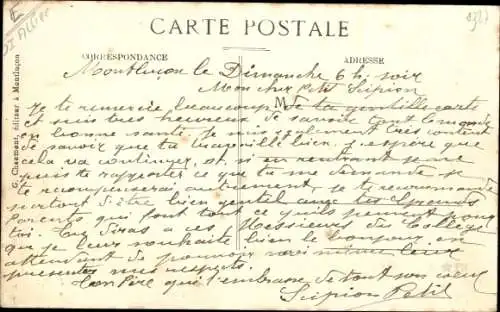 CARTE POSTALE
CORRESPONDANCE
ADRESSE
Montluçon le Dimanche 6 h. soir
Mon cher petit Scipion
Je te remercie beaucoup de ta gentille carte
et suis très heureux de savoir tout le monde
en bonne santé. Je suis également très content
de savoir que tu travailles bien. J'espère que
cela va continuer, et si en rentrant je ne
puis te rapporter ce que tu me demande je
te recompenserai autrement, je te recommande
surtout d'être bien gentil avec tes Grands
Parents qui font tout ce qu'ils peuvent pour
toi. Tu diras a ces Messieurs du College
que je leur souhaite bien le bonjour en
attendant de pouvoir moi même leur
presenter mes respects.
Ton Père qui t'embrasse de tout son coeur
Scipion Petit
G. Chaumont, éditeur à Montluçon
03 Allier